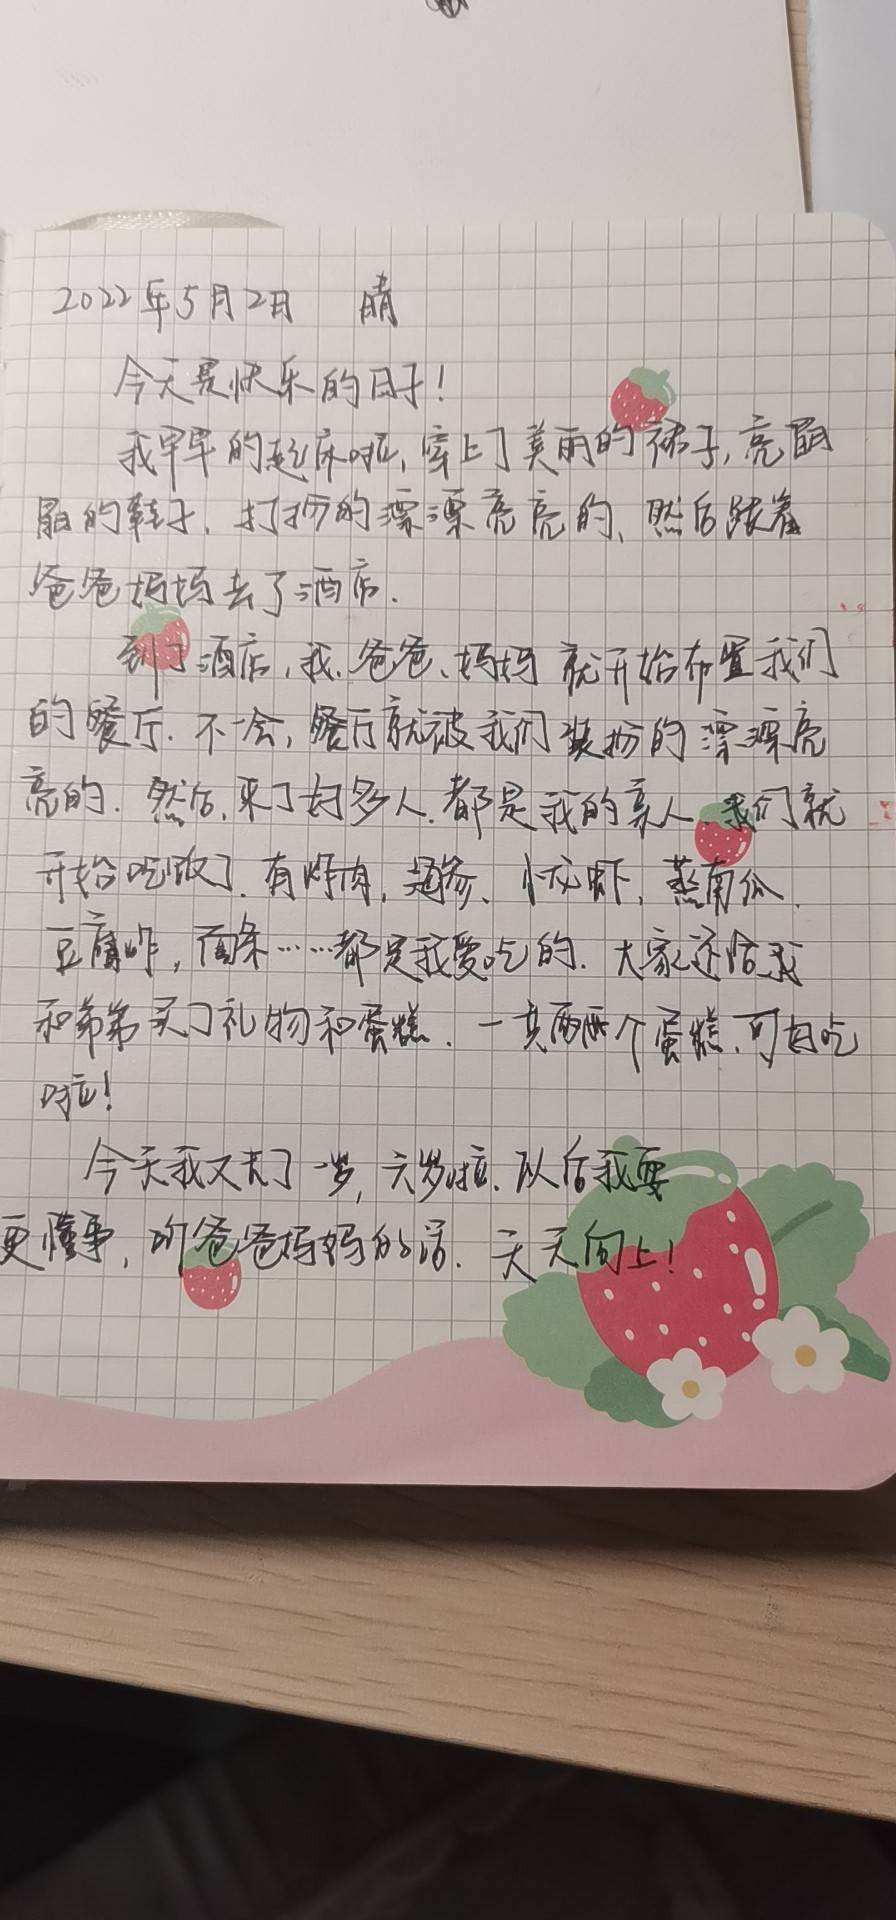 2022年5月2日 晴
今天是快乐的日子!
我早早的起床啦,穿上了美丽的裙子,亮晶
晶的鞋子,打扮的漂漂亮亮的,然后跟着
爸爸妈妈去了酒店.
到了酒店,我、爸爸、妈妈就开始布置我们
的餐厅.不一会,餐厅就被我们装扮的漂漂亮
亮的.然后,来了好多人.都是我的亲人.我们就
开始吃饭了.有炸肉,海参、虾,蒸南瓜、
豆腐,面条……都是我爱吃的.大家还给我
和弟弟买了礼物和蛋糕.一共两个蛋糕,可好吃
啦!
今天我又大了一岁,六岁啦.以后我要
更懂事,听爸爸妈妈的话.天天向上!